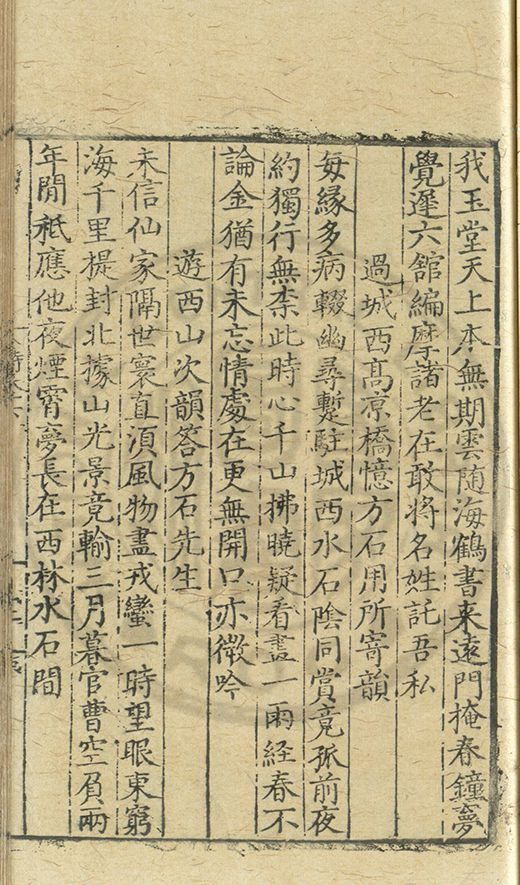 我玉堂天上本無期雲随海鶴書来遠門掩春鐘夢
覺遲六舘編摩諸老在敢將名姓託吾私
過城西高凉橋憶方石用所寄韻
每緣多病輟幽尋蹔駐城西水石陰同賞竟孤前夜
約獨行無柰此時心千山拂曉疑看畫一雨経春不
論金猶有未忘情處在更無開口亦微吟
遊西山次韻答方石先生
未信仙家隔世寰直湏風物盡戎蠻一時望眼東窮
海千里提封北據山光景竟輸三月暮官曹空負兩
年閒秪應他夜煙霄夢長在西林水石間